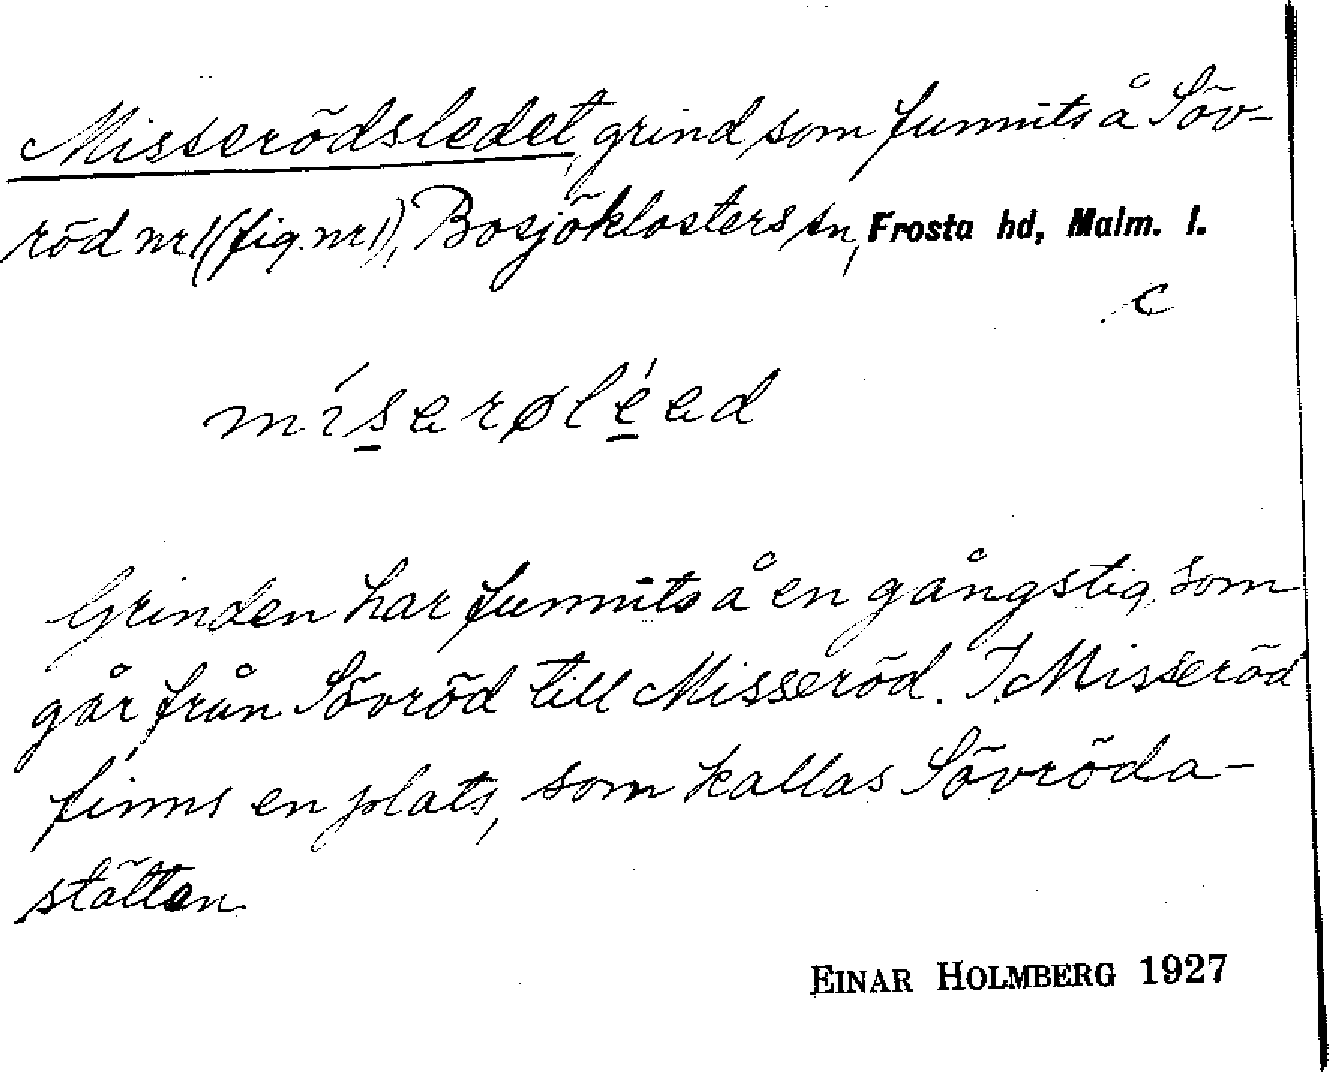 Misserödsledet, grind, som funnits å Söv-
röd nr 1 (fig. nr 1), Bosjöklosters sn, Frosta hd, Malm. l.
c
míserøléed
Grinden har funnits å en gångstig, som
går från Sövröd till Misseröd. I Misseröd
finns en plats, som kallas Sövröda-
stätten
EINAR HOLMBERG 1927